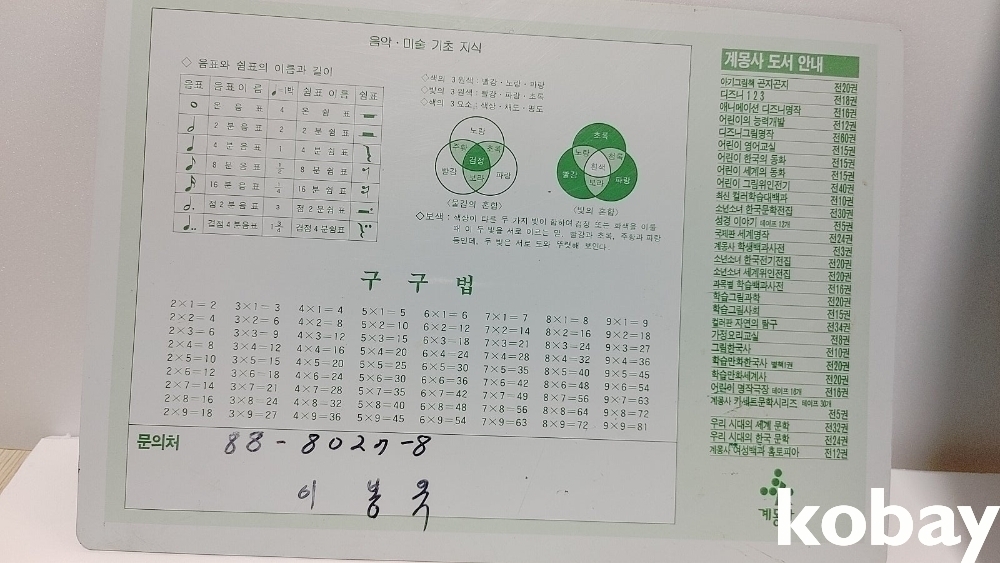 음악·미술 기초 지식
◇ 음표와 쉼표의 이름과 길이
음표 음표이름 ♩=1박 쉼표이름 쉼표
온 음 표 4 온 쉼 표
2 분 음 표 2 2 분 쉼 표
4 분 음 표 1 4 분 쉼 표
8 분 음 표 1/2 8 분 쉼 표
16 분 음 표 1/4 16 분 쉼 표
점 2 분 음 표 3 점 2 분 쉼 표
겹점 4 분음표 1 3/4 겹점 4 분쉼표
◇색의 3원색 : 빨강·노랑·파랑
◇빛의 3원색 : 빨강·파랑·초록
◇색의 3요소 : 색상·채도·명도
노랑
주황 초록
검정
빨강 보라 파랑
〈물감의 혼합〉
초록
노랑 청록
흰색
빨강 보라 파랑
〈빛의 혼합〉
◇보색 : 색상이 다른 두 가지 빛이 합하여 검정 또는 회색을 이룰
때 이 두 빛을 서로 이르는 말. 빨강과 초록, 주황과 파랑
등인데, 두 빛은 서로 도와 뚜렷해 보인다.
구 구 법
2×1= 2 3×1= 3 4×1= 4 5×1= 5 6×1= 6 7×1= 7 8×1= 8 9×1= 9
2×2= 4 3×2= 6 4×2= 8 5×2=10 6×2=12 7×2=14 8×2=16 9×2=18
2×3= 6 3×3= 9 4×3=12 5×3=15 6×3=18 7×3=21 8×3=24 9×3=27
2×4= 8 3×4=12 4×4=16 5×4=20 6×4=24 7×4=28 8×4=32 9×4=36
2×5=10 3×5=15 4×5=20 5×5=25 6×5=30 7×5=35 8×5=40 9×5=45
2×6=12 3×6=18 4×6=24 5×6=30 6×6=36 7×6=42 8×6=48 9×6=54
2×7=14 3×7=21 4×7=28 5×7=35 6×7=42 7×7=49 8×7=56 9×7=63
2×8=16 3×8=24 4×8=32 5×8=40 6×8=48 7×8=56 8×8=64 9×8=72
2×9=18 3×9=27 4×9=36 5×9=45 6×9=54 7×9=63 8×9=72 9×9=81
문의처 88-8027-8
이 봉 욱
계몽사 도서 안내
아기그림책 곤지곤지 전20권
디즈니 1 2 3 전18권
애니메이션 디즈니명작 전16권
어린이의 능력개발 전12권
디즈니그림명작 전60권
어린이 영어교실 전15권
어린이 한국의 동화 전15권
어린이 세계의 동화 전15권
어린이 그림위인전기 전40권
최신 컬러학습대백과 전10권
소년소녀 한국문학전집 전30권
성경 이야기 테이프 12개 전5권
국제판 세계명작 전24권
계몽사 학생백과사전 전3권
소년소녀 한국전기전집 전20권
소년소녀 세계위인전집 전20권
과목별 학습백과사전 전16권
학습그림과학 전20권
학습그림사회 전15권
컬러판 자연의 탐구 전34권
가정요리교실 전8권
그림한국사 전10권
학습만화한국사 별책1권 전20권
학습만화세계사 전20권
어린이 명작극장 테이프 16개 전16권
계몽사 카세트문학시리즈 테이프 30개
전5권
우리 시대의 세계 문학 전32권
우리 시대의 한국 문학 전24권
계몽사 여성백과 홈토피아 전12권
계몽
kobay